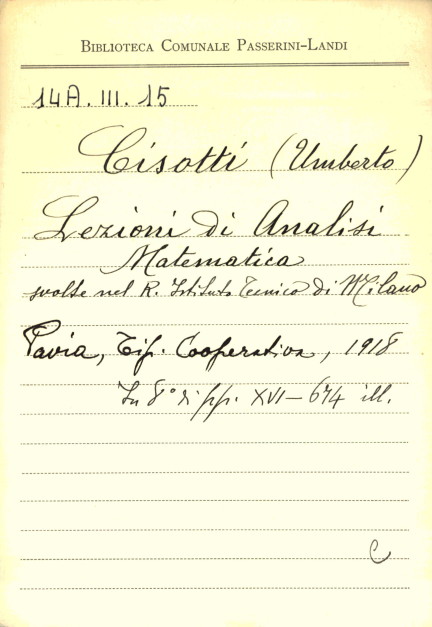 BIBLIOTECA COMUNALE PASSERINI-LANDI
14A. III. 15
Cisotti (Umberto)
Lezioni di Analisi
Matematica
svolte nel R. Istituto Tecnico di Milano
Pavia, Tip. Cooperativa, 1918
In 8° di pp. XVI-674 ill.
C